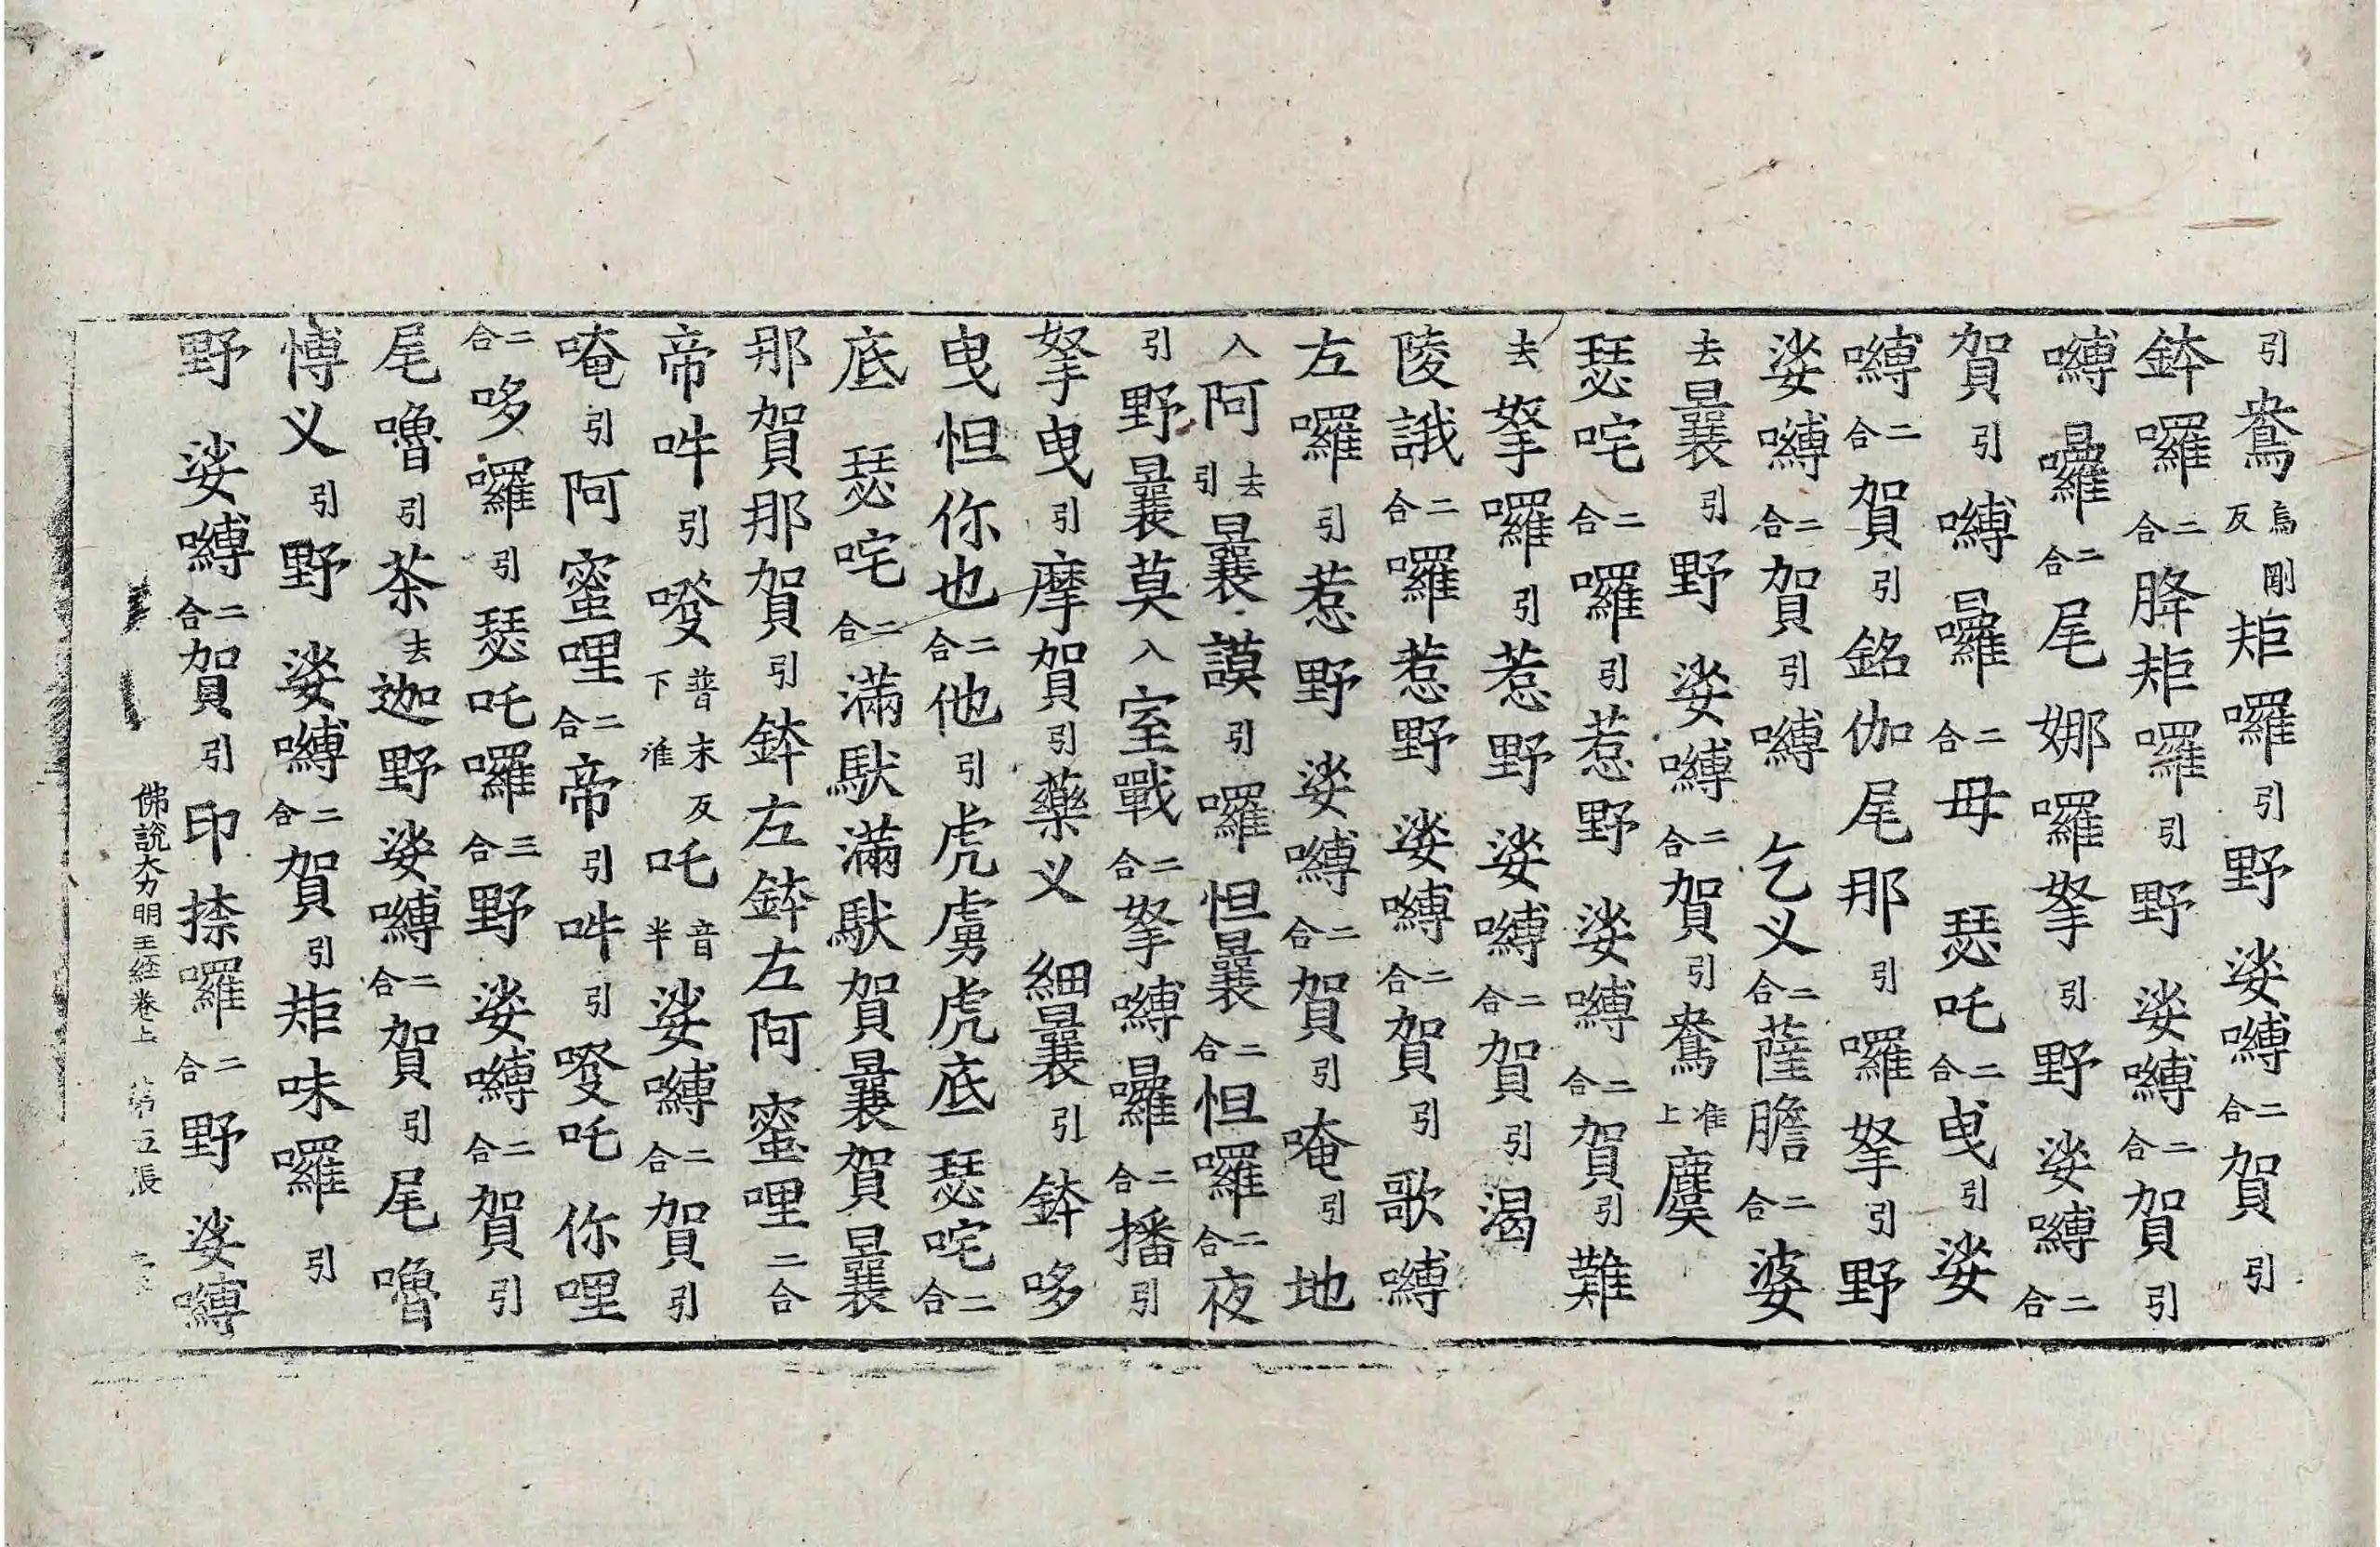 引鴦烏剛反矩囉引野娑嚩二合賀引
鉢囉二合胮矩囉引野娑嚩二合賀引
嚩㘓二合尾娜囉拏引野娑嚩二合
賀引嚩㘓二合毋瑟吒二合曳引娑
嚩二合賀引銘伽尾那引囉拏引野
娑嚩二合賀引嚩乞义二合薩膽二合婆
去曩引野娑嚩二合賀引鴦准上麌
瑟咤二合囉引惹野娑嚩二合賀引難
去拏囉引惹野娑嚩二合賀引渴
陵誐二合囉惹野娑嚩二合賀引歌嚩
左囉引惹野娑嚩二合賀引唵引地
入阿去引曩謨引囉怛曩二合怛囉二合夜
引野曩莫入室戰二合拏嚩㘓二合播引
拏曳引摩賀引藥义細曩引鉢哆
曳怛你也二合他引虎虜虎底瑟咤二合
底瑟咤二合滿馱滿馱賀曩賀曩
那賀那賀引鉢左鉢左阿蜜哩二合
帝吽引㗶普末反下准吒半音娑嚩二合賀引
唵引阿蜜哩二合帝引吽引㗶吒你哩
二合哆囉引瑟吒囉三合野娑嚩二合賀引
尾嚕引茶去迦野娑嚩二合賀引尾嚕
博义引野娑嚩二合賀引矩味囉引
野娑嚩二合賀引印捺囉二合野娑嚩
佛說大力明王経卷上 第五張